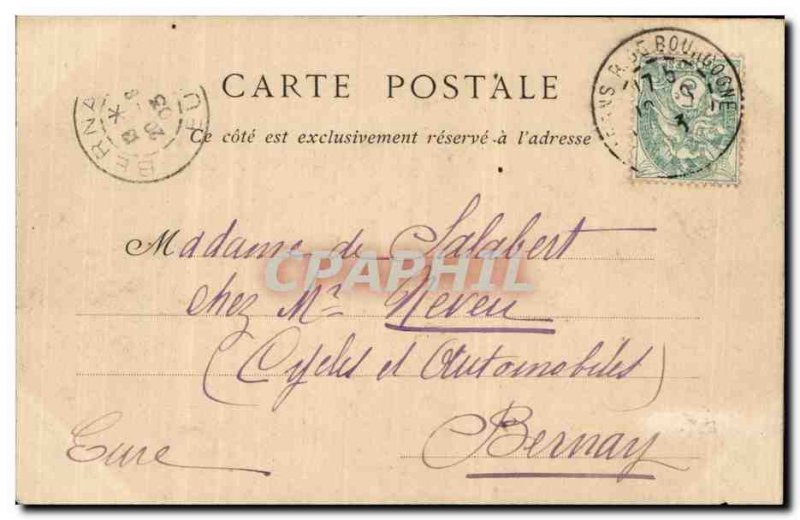 CARTE POSTALE
Ce côté est exclusivement réservé à l'adresse
R. DE BOURGOGNE
BERNA
EU
20
03
5
Madame de Salabert
CPAPHIL
chez Mr Neveu
(Cycles et Automobiles)
Bernay
Eure